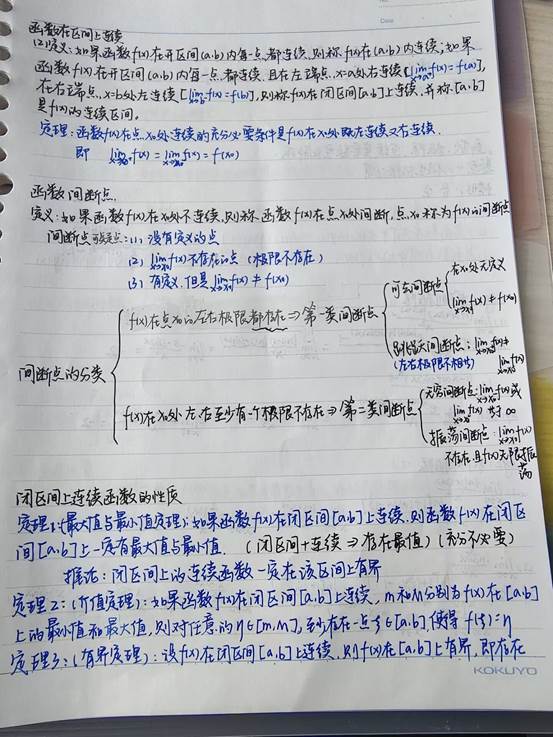 函数在区间上连续
(2)定义:如果函数f(x)在开区间(a,b)内每一点都连续,则称f(x)在(a,b)内连续;如果
函数f(x)在开区间(a,b)内每一点都连续,且在左端点x=a处右连续[lim x→a⁺ f(x)=f(a)],
在右端点x=b处左连续[lim x→b⁻ f(x)=f(b)],则称f(x)在闭区间[a,b]上连续,并称[a,b]
是f(x)的连续区间。
定理:函数f(x)在点x₀处连续的充分必要条件是f(x)在x₀处既左连续又右连续.
即 lim x→x₀⁻ f(x)=lim x→x₀⁺ f(x)=f(x₀)
函数间断点.
定义:如果函数f(x)在x₀处不连续,则称函数f(x)在点x₀处间断,点x₀称为f(x)的间断点
间断点可能是点:(1) 没有定义的点
(2) lim x→x₀ f(x)不存在的点(极限不存在)
(3) 有定义,但是lim x→x₀ f(x)≠f(x₀)
间断点的分类
f(x)在点x₀的左右极限都存在⇒第一类间断点
可去间断点
在x₀处无定义
lim x→x₀ f(x)≠f(x₀)
跳跃间断点:lim x→x₀⁻ f(x)≠
(左右极限不相等) lim x→x₀⁺ f(x)
f(x)在x₀处左右至少有一个极限不存在⇒第二类间断点
无穷间断点:lim x→x₀⁻ f(x)或
lim x→x₀⁺ f(x)为∞
振荡间断点:lim x→x₀ f(x)
不存在且f(x)无限振
荡
闭区间上连续函数的性质
定理1:(最大值与最小值定理):如果函数f(x)在闭区间[a,b]上连续,则函数f(x)在闭区
间[a,b]上一定有最大值与最小值. (闭区间+连续⇒存在最值)(充分不必要)
推论:闭区间上的连续函数一定在该区间上有界
定理2:(介值定理):如果函数f(x)在闭区间[a,b]上连续,m和M分别为f(x)在[a,b]
上的最小值和最大值,则对任意的η∈[m,M],至少存在一点ξ∈[a,b],使得f(ξ)=η
定理3:(有界定理):设f(x)在闭区间[a,b]上连续,则f(x)在[a,b]上有界,即存在
KOKUYO